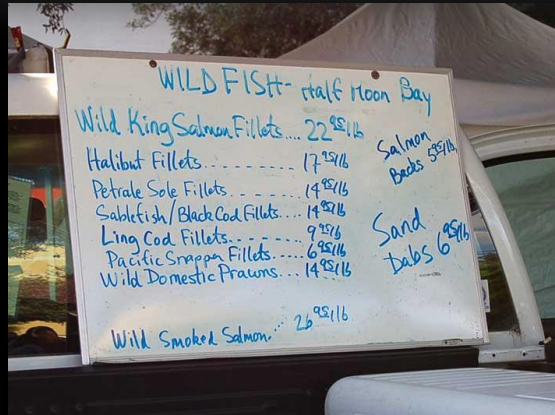 WILD FISH- Half Moon Bay
Wild King Salmon Fillets.... 22 95/lb
Halibut Fillets......... 17 95/lb
Petrale Sole Fillets..... 14 95/lb
Sablefish/Black Cod Fillets.... 14 95/lb
Ling Cod Fillets........ 9 95/lb
Pacific Snapper Fillets.... 6 95/lb
Wild Domestic Prawns... 14 95/lb
Wild Smoked Salmon... 26 95/lb
Salmon
Backs 5 95/lb
Sand
Dabs 6 95/lb